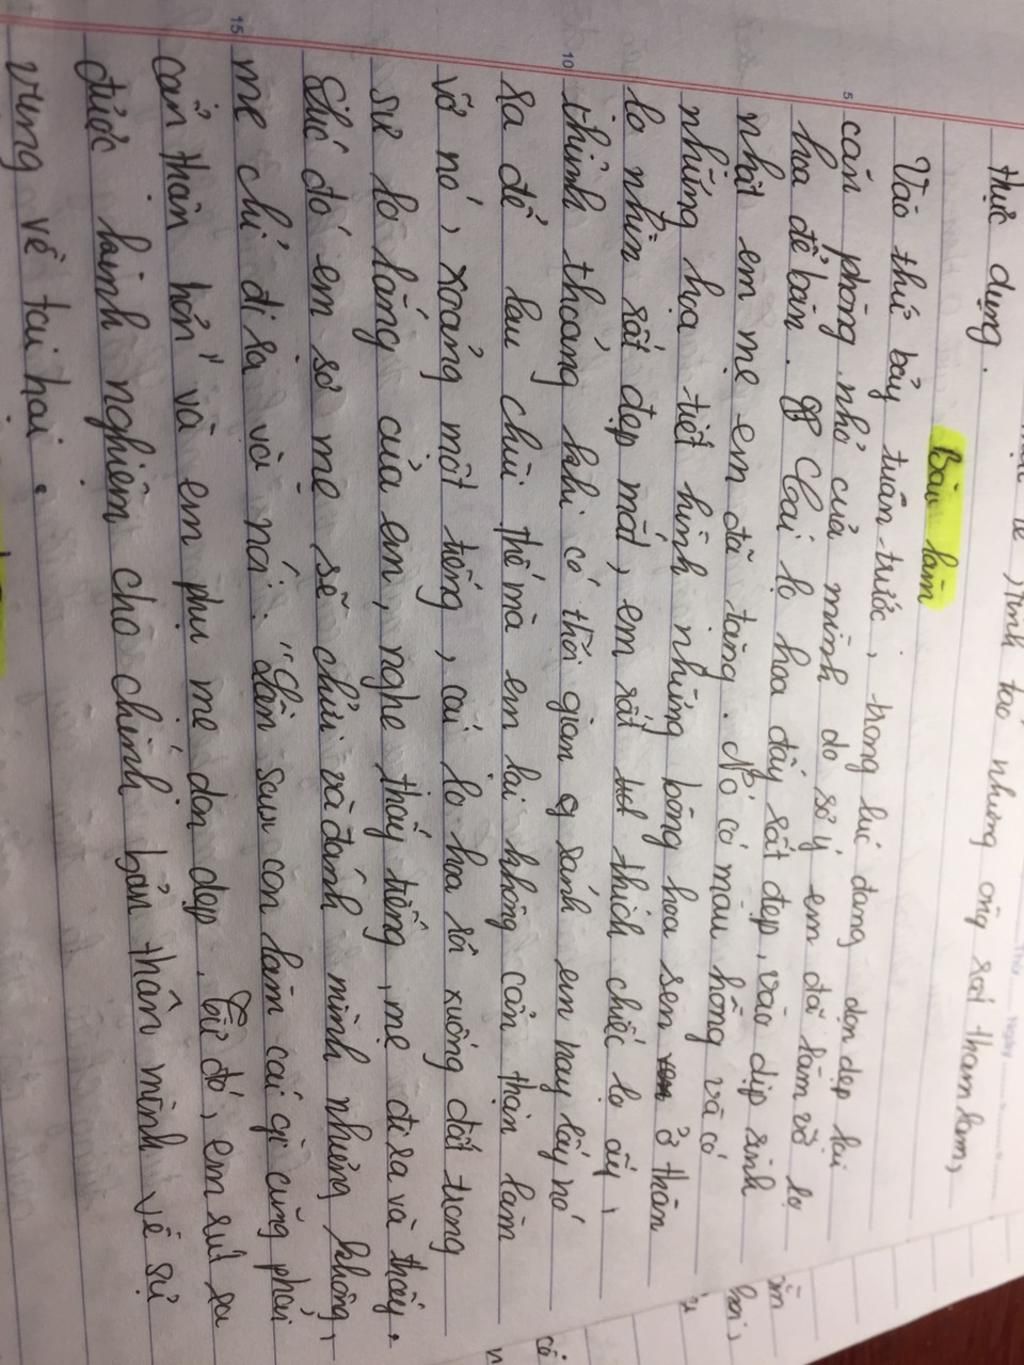 tinh tao nhưng ông rất tham lam,
thực dụng.
Bài làm
Vào thứ bảy tuần trước, trong lúc đang dọn dẹp lại
căn phòng nhỏ của mình do sơ ý em đã làm vỡ lọ
hoa để bàn. Cái lọ hoa đấy rất đẹp, vào dịp sinh
nhật em mẹ em đã tặng. Nó có màu hồng và có
những họa tiết hình những bông hoa sen ở thân
lọ nhìn rất đẹp mắt, em rất thích chiếc lọ ấy,
thỉnh thoảng khi có thời gian rảnh em hay lấy nó
ra để lau chùi thế mà em lại không cẩn thận làm
vỡ nó, xoảng một tiếng, cái lọ hoa rơi xuống đất trong
sự lo lắng của em, nghe thấy tiếng, mẹ đi ra và thấy.
Lúc đó em sợ mẹ sẽ chửi và đánh mình nhưng không,
mẹ chỉ đi ra và nói: "Lần sau con làm cái gì cũng phải
cẩn thận hơn" và em phụ mẹ dọn dẹp. Từ đó, em rút ra
được kinh nghiệm cho chính bản thân mình về sự
vụng về tai hại.